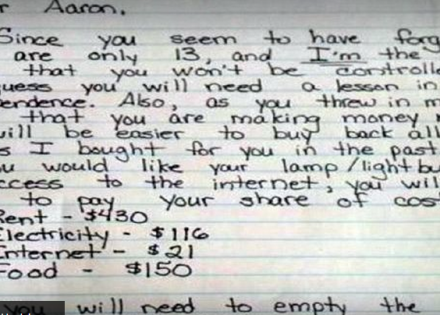 r Aaron,
Since you seem to have
are only 13, and I'm the
that you won't be
you will need a lesson in
Also, as you threw in
that you are making money
be easier to buy back all
I bought for you in the past
would like your lamp/light
to the internet, you will
to pay your share of
Rent - $430
Electricity - $116
Internet - $21
Food - $150
you will need to empty the